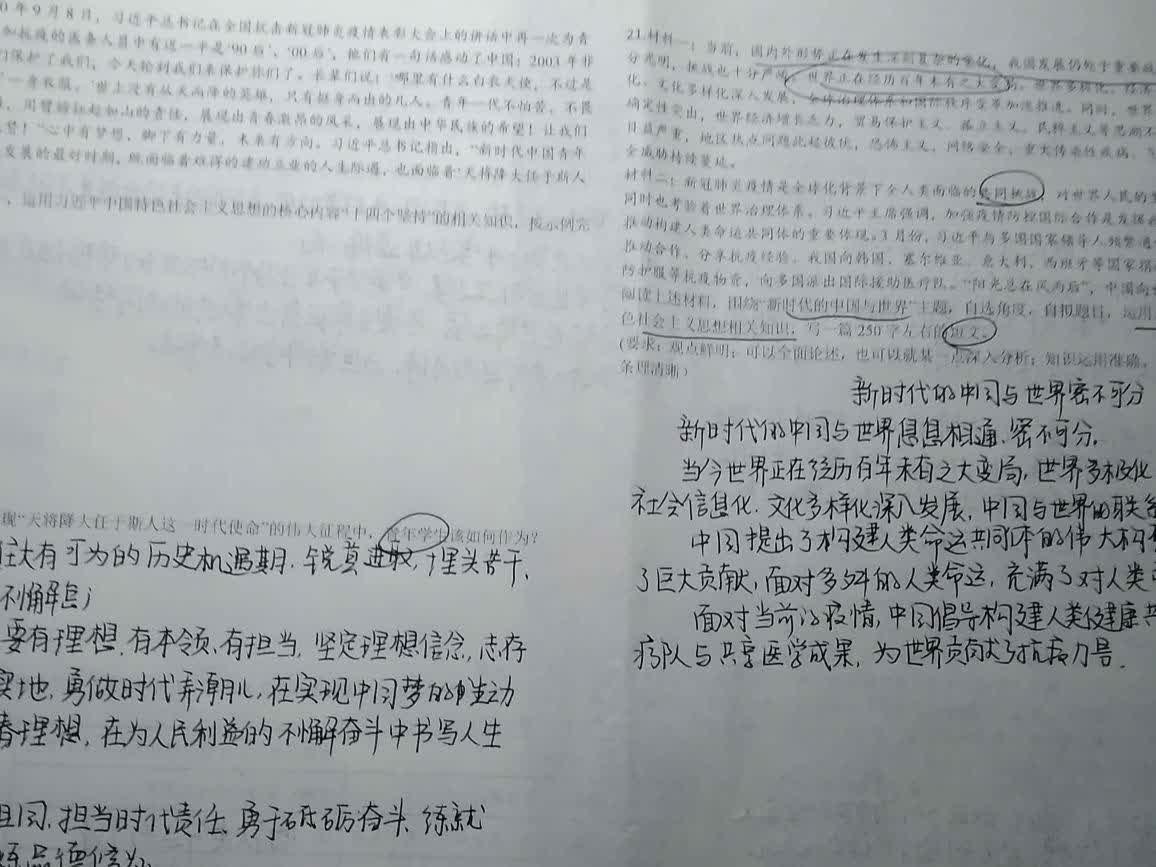 0年9月8日，习近平总书记在全国抗击新冠肺炎疫情表彰大会上的讲话中再一次为青
抗疫的医务人员中有近一半是‘90后’、‘00后’，他们有一句话感动了中国：2003年非
们保护了我们，今天轮到我们来保护你们了。长辈们说：‘哪里有什么白衣天使，不过是
一身衣服。’世上没有从天而降的英雄，只有挺身而出的凡人。青年一代不怕苦、不畏
，用臂膀扛起如山的责任，展现出青春激昂的风采，展现出中华民族的希望！让我们
赞！”心中有梦想，脚下有力量，未来有方向。习近平总书记指出，“新时代中国青年
发展的最好时期，既面临着难得的建功立业的人生际遇，也面临着‘天将降大任于斯人
，运用习近平中国特色社会主义思想的核心内容“十四个坚持”的相关知识，按示例完
现“天将降大任于斯人这一时代使命”的伟大征程中，青年学生该如何作为？
大有可为的历史机遇期，锐意进取，埋头苦干、
不懈奋
要有理想、有本领、有担当，坚定理想信念，志存
实地，勇做时代弄潮儿，在实现中国梦的生动
春理想，在为人民利益的不懈奋斗中书写人生
担当时代责任，勇于砥砺奋斗，练就
炼品德修为
21.材料一：当前，国内外形势正在发生深刻复杂的变化，我国发展仍处于重要战
分光明，挑战也十分严峻。世界正在经历百年未有之大变局，世界多极化、经济
化、文化多样化深入发展，全球治理体系和国际秩序变革加速推进。同时，世界
确定性突出，世界经济增长乏力，贸易保护主义、孤立主义、民粹主义等思潮不
日益严重，地区热点问题此起彼伏，恐怖主义、网络安全、重大传染性疾病、气
全威胁持续蔓延。
材料二：新冠肺炎疫情是全球化背景下全人类面临的共同挑战，对世界人民的
同时也考验着世界治理体系。习近平主席强调，加强疫情防控国际合作是发挥
推动构建人类命运共同体的重要体现。3月份，习近平与多国国家领导人频繁通
推动合作、分享抗疫经验。我国向韩国、塞尔维亚、意大利、西班牙等国家捐
防护服等抗疫物资，向多国派出国际援助医疗队。“阳光总在风雨后”，中国向
阅读上述材料，围绕“新时代的中国与世界”主题，自选角度，自拟题目，运用
色社会主义思想相关知识，写一篇250字左右的短文。
(要求：观点鲜明；可以全面论述，也可以就某一点深入分析；知识运用准确，
条理清晰）
新时代的中国与世界密不可分
新时代的中国与世界息息相通，密不可分。
当今世界正在经历百年未有之大变局，世界多极化
社会信息化、文化多样化深入发展，中国与世界的联系
中国提出了构建人类命运共同体的伟大构
了巨大贡献，面对多舛的人类命运，充满了对人类
面对当前的疫情，中国倡导构建人类健康共
疗队与共享医学成果，为世界贡献了抗疫力量。